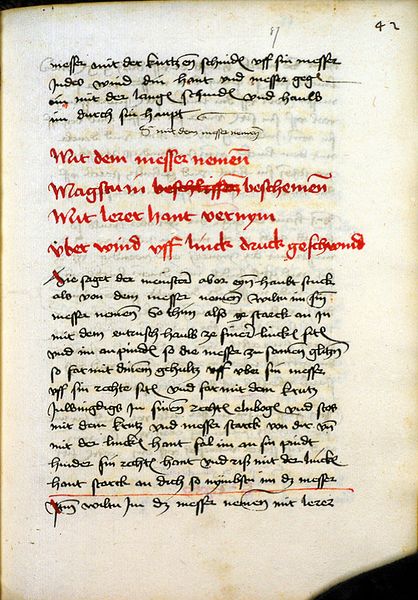 42
messer mit der kurtzen schnid vff sin messer
Indes wind din hant vnd messer gegen
im mit der langen schnid vnd hauw
im durch sin haupt
mit dem messer nemen
Mit dem messer nemen
Magstu in beschemen
Mit lerer hant vernym
Vber wind vff linck druck geschwind
Hie saget der meinster aber eyn haubt stuck
als von dem messer nemen wiltu im sin
messer nemen So thun also ge starck an in
mit dem hauw ze siner lincken sitten
vnd im so die messer zu samen
so far mit dinem gehultz vff vber sin messer
vff sin rechte siten vnd far mit dem krutz
in sinen rechten elnbogen vnd stos
mit dem krutz vnd messer starck von dir vnd
mit der lincken hant fal im an sin
hinder sin rechten hant vnd riß mit der lincken
hant starck an dich so nymbstu im das messer
wiltu im das messer nemen mit lerer